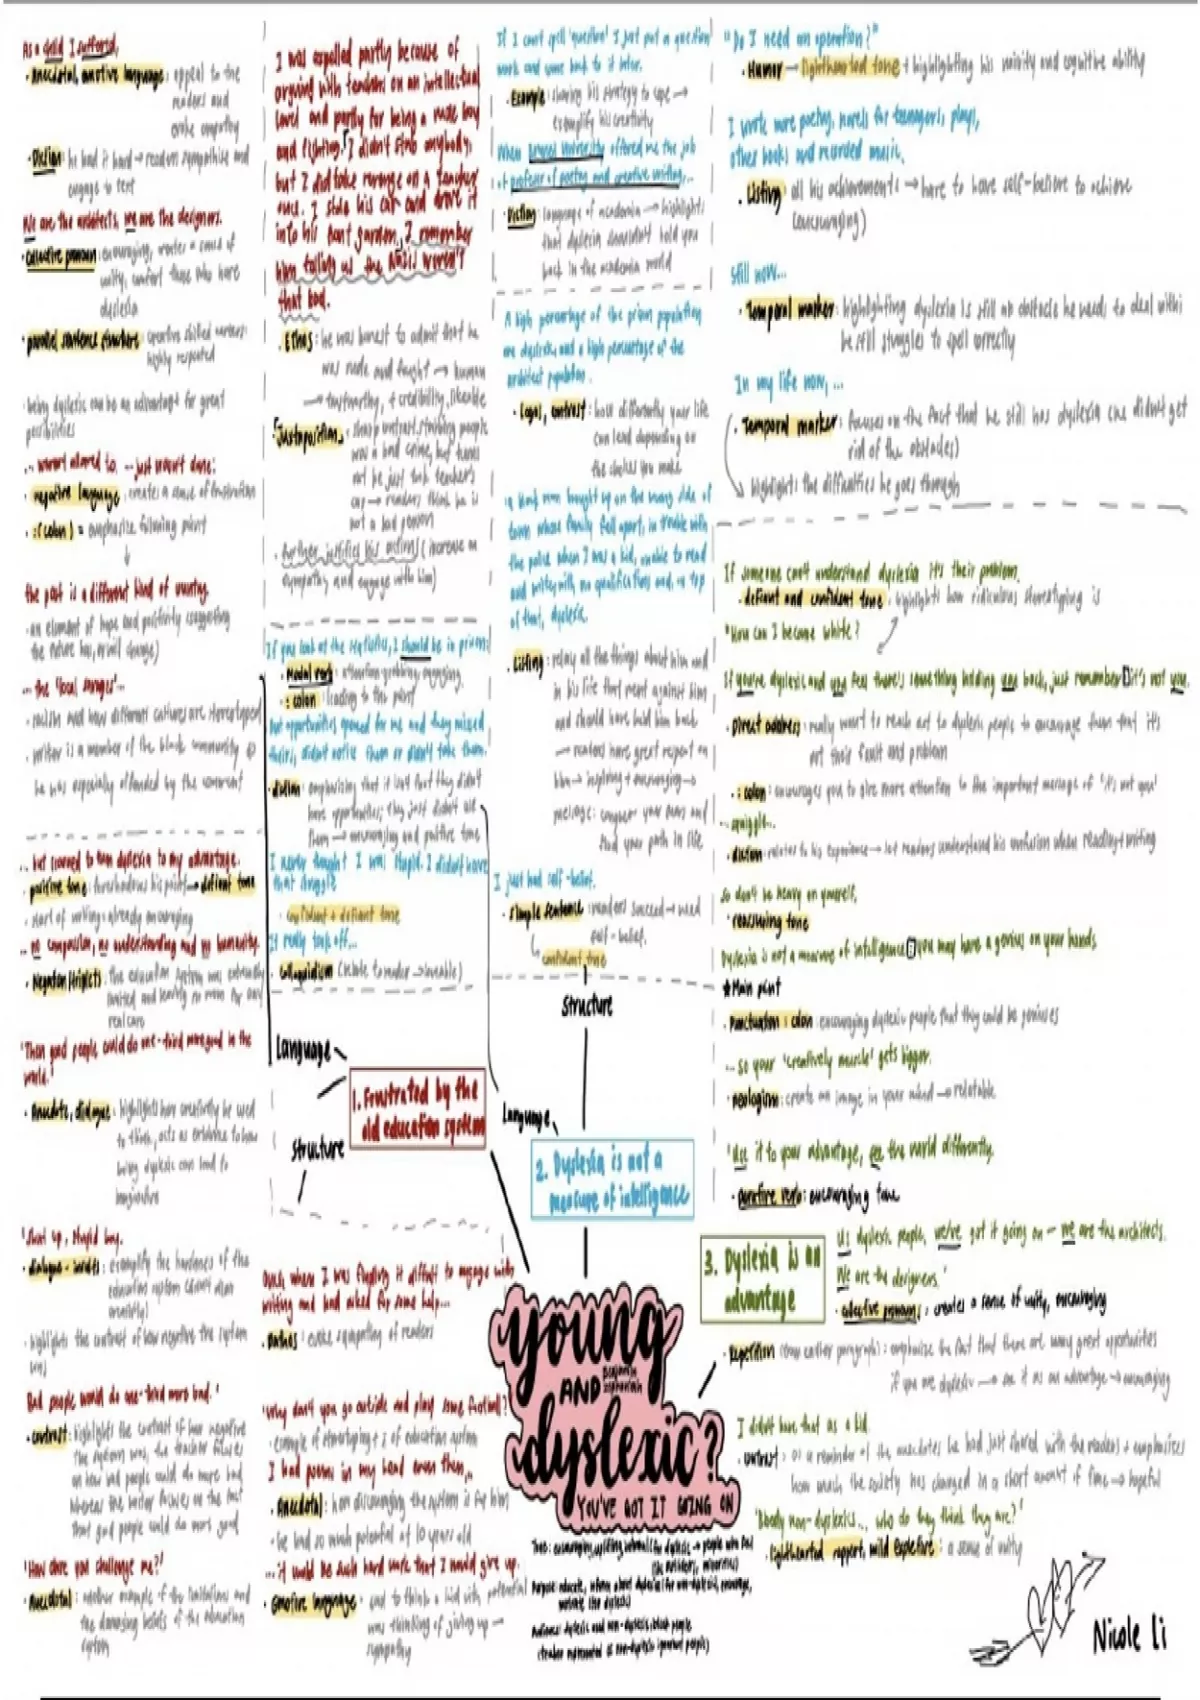 As a child I suffered,
· Anecdotal, emotive language : appeal to the
readers and
evoke sympathy
· Diction: he had it hard → readers sympathise and
engage to text
We are the architects, we are the designers.
· collective pronoun : encouraging, creates a sense of
unity, comfort those who have
dyslexia
· parallel sentence structure : creative skilled careers:
highly respected
· being dyslexic can be an advantage for great
possibilities
... wasn't allowed to ... just wasn't done:
· negative language : creates a sense of frustration
· : (colon) = emphasize following point
↓
the past is a different kind of country.
· an element of hope and positivity (suggesting
the future has, or will change)
... the 'local savages'...
· racism and how different cultures are stereotyped
· writer is a member of the black community
he was especially offended by the comment
... but learned to turn dyslexia to my advantage.
· positive tone : foreshadows his point → defiant tone
· start of writing : already encouraging
... no compassion, no understanding and no humanity.
· Negation (triplet) : the education system was extremely
limited and leaving no room for any
real care
'Then good people could do one-third more good in the
world.'
· Anecdote, dialogue : highlights how creatively he used
to think, acts as evidence to how
being dyslexic can lead to
imaginative
'Shut up, stupid boy.
· dialogue - insults : exemplify the harshness of the
education system
· highlights the contrast of how negative the system
was
Bad people would do one-third more bad.'
· contrast : highlights the contrast of how negative
the system was, the teacher focuses
on how bad people could do more bad
whereas the writer focuses on the fact
that good people could do more good
'How dare you challenge me?'
· Anecdotal : another example of the limitations and
the damaging beliefs of the education
system
I was expelled partly because of
arguing with teachers on an intellectual
level and partly for being a rude boy
and fighting. I didn't stab anybody,
but I did take revenge on a teacher
once. I stole his car and drove it
into his front garden. I remember
him telling us the Nazis weren't
that bad.
· Ethos : he was honest to admit that he
was rude and fought → human
→ trustworthy, + credibility, likeable
· Juxtaposition : sharp contrast, stabbing people
was a bad crime, but turns
out he just took teacher's
car → readers think he is
not a bad person
· further justifies his actions (increase on
sympathy and engage with him)
If you look at the statistics, I should be in prison:
· Modal verb : attention-grabbing, engaging,
· : colon : leading to the point
but opportunities opened for me and they missed
theirs, didn't notice them or didn't take them.
· diction : emphasising that it isn't that they didn't
have opportunities; they just didn't use
them → encouraging and positive tone
I never thought I was stupid. I didn't have
that struggle
· confident + defiant tone
It really took off...
· Colloquialism
Language
Structure
1. Frustrated by the
old education system
Once, when I was finding it difficult to engage with
writing and had asked for some help...
· Pathos : evoke sympathy of readers
'Why don't you go outside and play some football?'
· example of stereotyping + of education system
I had poems in my head even then,..
· Anecdotal : how discouraging the system is for him
· he had so much potential at 10 years old
...it would be such hard work that I would give up.
· emotive language : sad to think a kid with potential
was thinking of giving up →
sympathy
If I can't spell 'question' I just put a question
mark and come back to it later.
· Example : showing his strategy to cope →
exemplify his creativity
When Brunel University offered me the job
of professor of poetry and creative writing...
· Diction : language of academia → highlights
that dyslexia shouldn't hold you
back in the academia world
A high percentage of the prison population
are dyslexic, and a high percentage of the
architect population.
· Logos, contrast : how differently your life
can lead depending on
the choices you make
a black man brought up on the wrong side of
town whose family fell apart, in trouble with
the police when I was a kid, unable to read
and write, with no qualifications and, on top
of that, dyslexic.
· Listing : relay all the things about him and
in his life that went against him
and should have held him back
→ readers have great respect on
him → inspiring + encouraging →
message : conquer your fears and
find your path in life
I just had self-belief.
· Simple sentence : readers succeed → need
self-belief.
confident tone
Structure
Language
2. Dyslexia is not a
measure of intelligence
young
AND
Benjamin
Zephaniah
dyslexic?
YOU'VE GOT IT GOING ON
Purpose: educate, inform about dyslexia
Audience: dyslexic and non-dyslexic
"Do I need an operation?"
· Humor → lighthearted tone + highlighting his vanity and cognitive ability
I wrote more poetry, novels for teenagers, plays,
other books and recorded music.
· Listing : all his achievements → have to have self-believe to achieve
(encouraging)
Still now...
· Temporal marker : highlighting dyslexia is still an obstacle he needs to deal with:
he still struggles to spell correctly
In my life now, ...
· Temporal marker : focuses on the fact that he still has dyslexia (he didn't get
rid of the obstacles)
highlights the difficulties he goes through
If someone can't understand dyslexia it's their problem.
· defiant and confident tone : highlights how ridiculous stereotyping is
"How can I become white?
If you're dyslexic and you feel there's something holding you back, just remember: it's not you.
· Direct address : really want to reach out to dyslexic people to encourage them that it's
not their fault and problem
· : colon : encourages you to give more attention to the important message of 'it's not you'
... squiggle...
· diction : relates to his experience → let readers understand his confusion when reading + writing
So don't be heavy on yourself.
· reassuring tone
Dyslexia is not a measure of intelligence: you may have a genius on your hands
★ Main point
· Punctuation : colon : encouraging dyslexic people that they could be geniuses
... so your 'creatively muscle' gets bigger.
· neologism : create an image in your mind → relatable
'Use it to your advantage, see the world differently.
· imperative verb : encouraging tone
3. Dyslexia is an
advantage
Us dyslexic people, we've got it going on - we are the architects.
We are the designers.'
· collective pronouns : creates a sense of unity, encouraging
· Repetition (from earlier paragraph) : emphasise the fact that there are many great opportunities
if you are dyslexic → see it as an advantage → encouraging
I didn't have that as a kid.
· contrast : as a reminder of the anecdotes he had just shared with the readers + emphasizes
how much the society has changed in a short amount of time → hopeful
'Bloody non-dyslexics... who do they think they are?'
· Lighthearted rapport, mild expletive : a sense of unity
Nicole Li